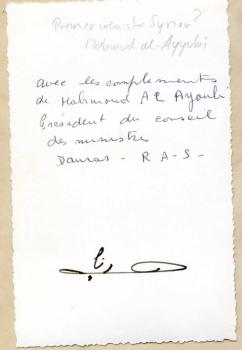 Premier ministre Syrien?
Mahmud al-Ayyubi
avec les complements
de Mahmoud Al Ayoubi
Président du conseil
des ministres
Damas - R A S -